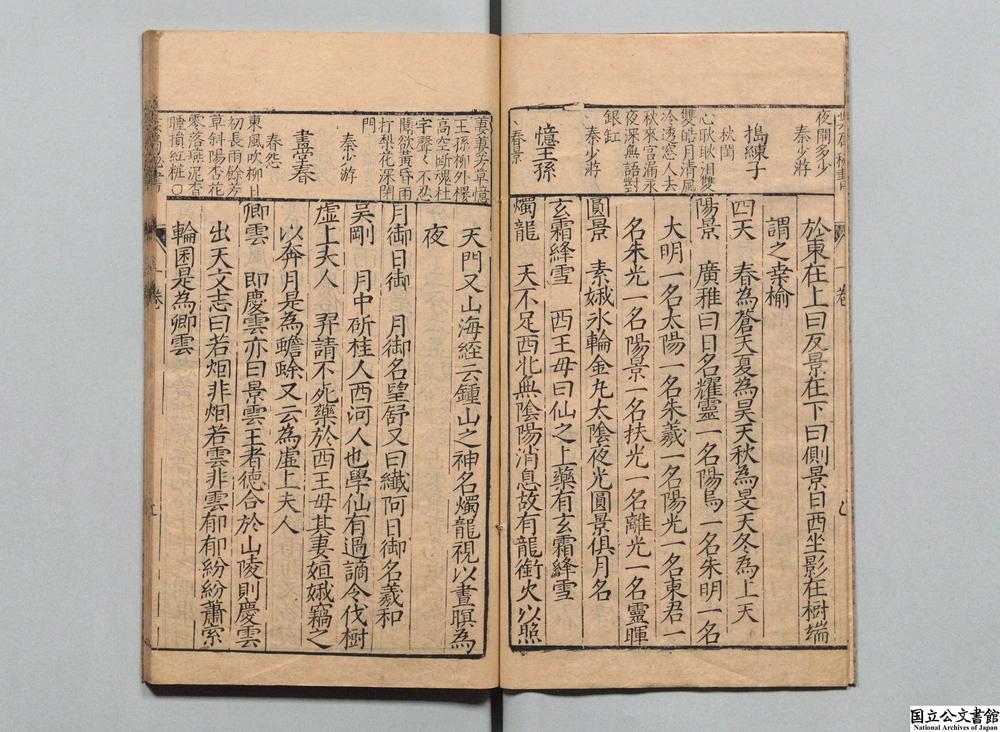 夜聞多少
秦少游
搗練子
秋閨
心耿耿淚雙
雙皓月清風
冷透窓人去
秋來宮漏永
夜深無語對
銀缸
秦少游
憶王孫
春景
於東在上曰反景在下曰側景日西坐影在樹端
謂之桒榆
四天　春為蒼天夏為昊天秋為旻天冬為上天
陽景　廣雅曰日名耀靈一名陽烏一名朱明一名
大明一名太陽一名朱羲一名陽光一名東君一
名朱光一名陽景一名扶光一名離光一名靈暉
圓景　素娥氷輪金丸太陰夜光圓景俱月名
玄霜絳雪　西王母曰仙之上藥有玄霜絳雪
燭龍　天不足西北無陰陽消息故有龍銜火以照
萋萋芳草憶
王孫柳外樓
高空斷魂杜
宇聲〻不忍
聞欲黃昏雨
打梨花深閉
門
秦少游
畫堂春
春怨
東風吹柳日
初長雨餘芳
草斜陽杏花
零落燕泥香
睡損紅粧〇
天門又山海經云鍾山之神名燭龍視以晝暝為
夜
月御日御　月御名望舒又曰纎阿日御名羲和
吴剛　月中斫桂人西河人也學仙有過謫令伐樹
虛上夫人　羿請不死藥於西王母其妻姮娥竊之
以奔月是為蟾蜍又云為虛上夫人
卿雲　即慶雲亦曰景雲王者德合於山陵則慶雲
出天文志曰若烟非烟若雲非雲郁郁紛紛蕭索
輪囷是為卿雲
国立公文書館
National Archives of Japan